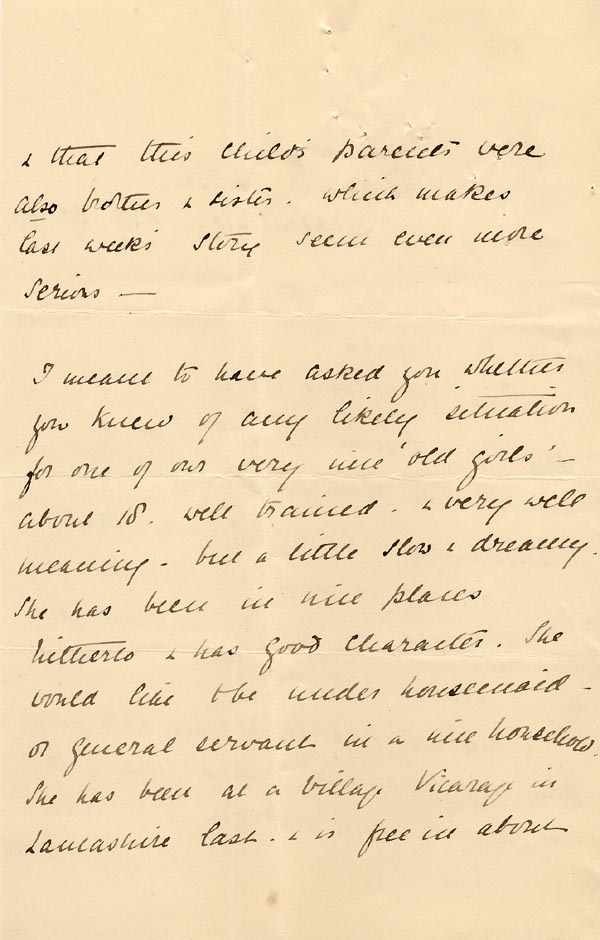 & that this child's parents were
also brother & sister. which makes
last week's story seem even more
serious —
I meant to have asked you whether
you knew of any likely situation
for one of our very nice 'old girls' –
about 18. well trained. & very well
meaning – but a little slow & dreamy.
She has been in nice places
hitherto & has good character. She
would like to be under housemaid –
or general servant in a nice household.
She has been at a Village Vicarage in
Lancashire last. & is free in about